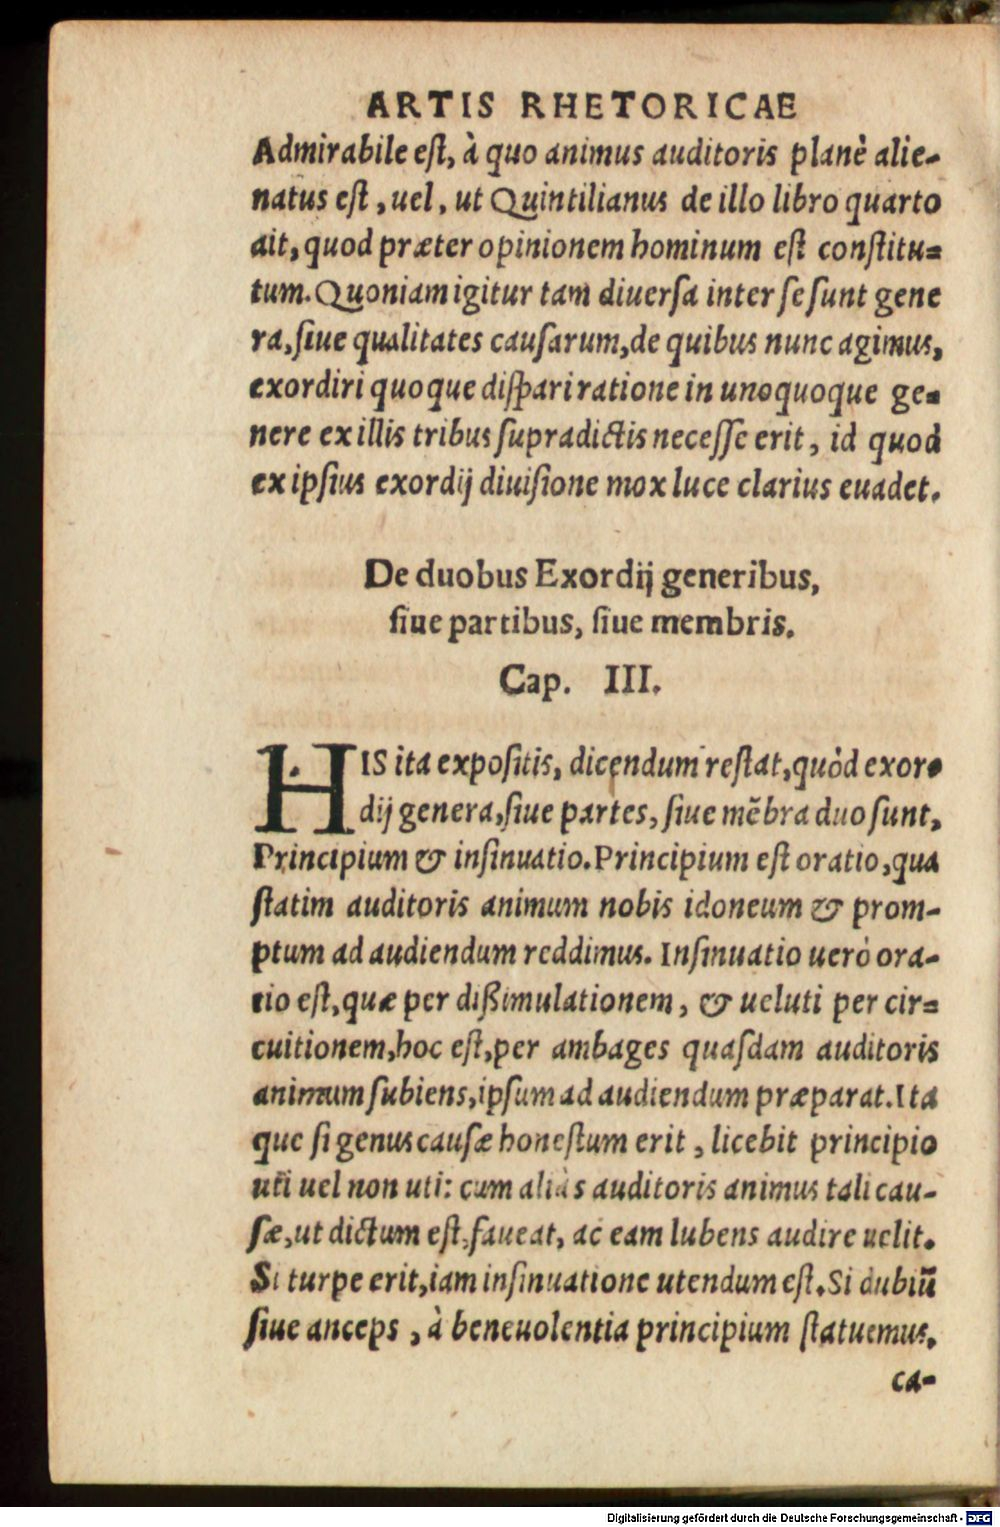 ARTIS RHETORICAE
Admirabile eſt, à quo animus auditoris planè alie-
natus eſt, uel, ut Quintilianus de illo libro quarto
ait, quod præter opinionem hominum eſt conſtitu-
tum. Quoniam igitur tam diuerſa inter ſe ſunt gene
ra, ſiue qualitates cauſarum, de quibus nunc agimus,
exordiri quoque diſpari ratione in unoquoque ge-
nere ex illis tribus ſupradictis neceſſe erit, id quod
ex ipſius exordij diuiſione mox luce clarius euadet.
De duobus Exordij generibus,
ſiue partibus, ſiue membris.
Cap. III.
HIS ita expoſitis, dicendum reſtat, quòd exor-
dij genera, ſiue partes, ſiue mẽbra duo ſunt,
Principium & inſinuatio. Principium eſt oratio, qua
ſtatim auditoris animum nobis idoneum & prom-
ptum ad audiendum reddimus. Inſinuatio uerò ora-
tio eſt, quæ per dißimulationem, & ueluti per cir-
cuitionem, hoc eſt, per ambages quaſdam auditoris
animum ſubiens, ipſum ad audiendum præparat. Ita
que ſi genus cauſæ honeſtum erit, licebit principio
uti uel non uti: cum aliàs auditoris animus tali cau-
ſæ, ut dictum eſt, faueat, ac eam lubens audire uelit.
Si turpe erit, iam inſinuatione utendum eſt. Si dubiũ
ſiue anceps, à beneuolentia principium ſtatuemus,
ca-
Digitalisierung gefördert durch die Deutsche Forschungsgemeinschaft - DFG